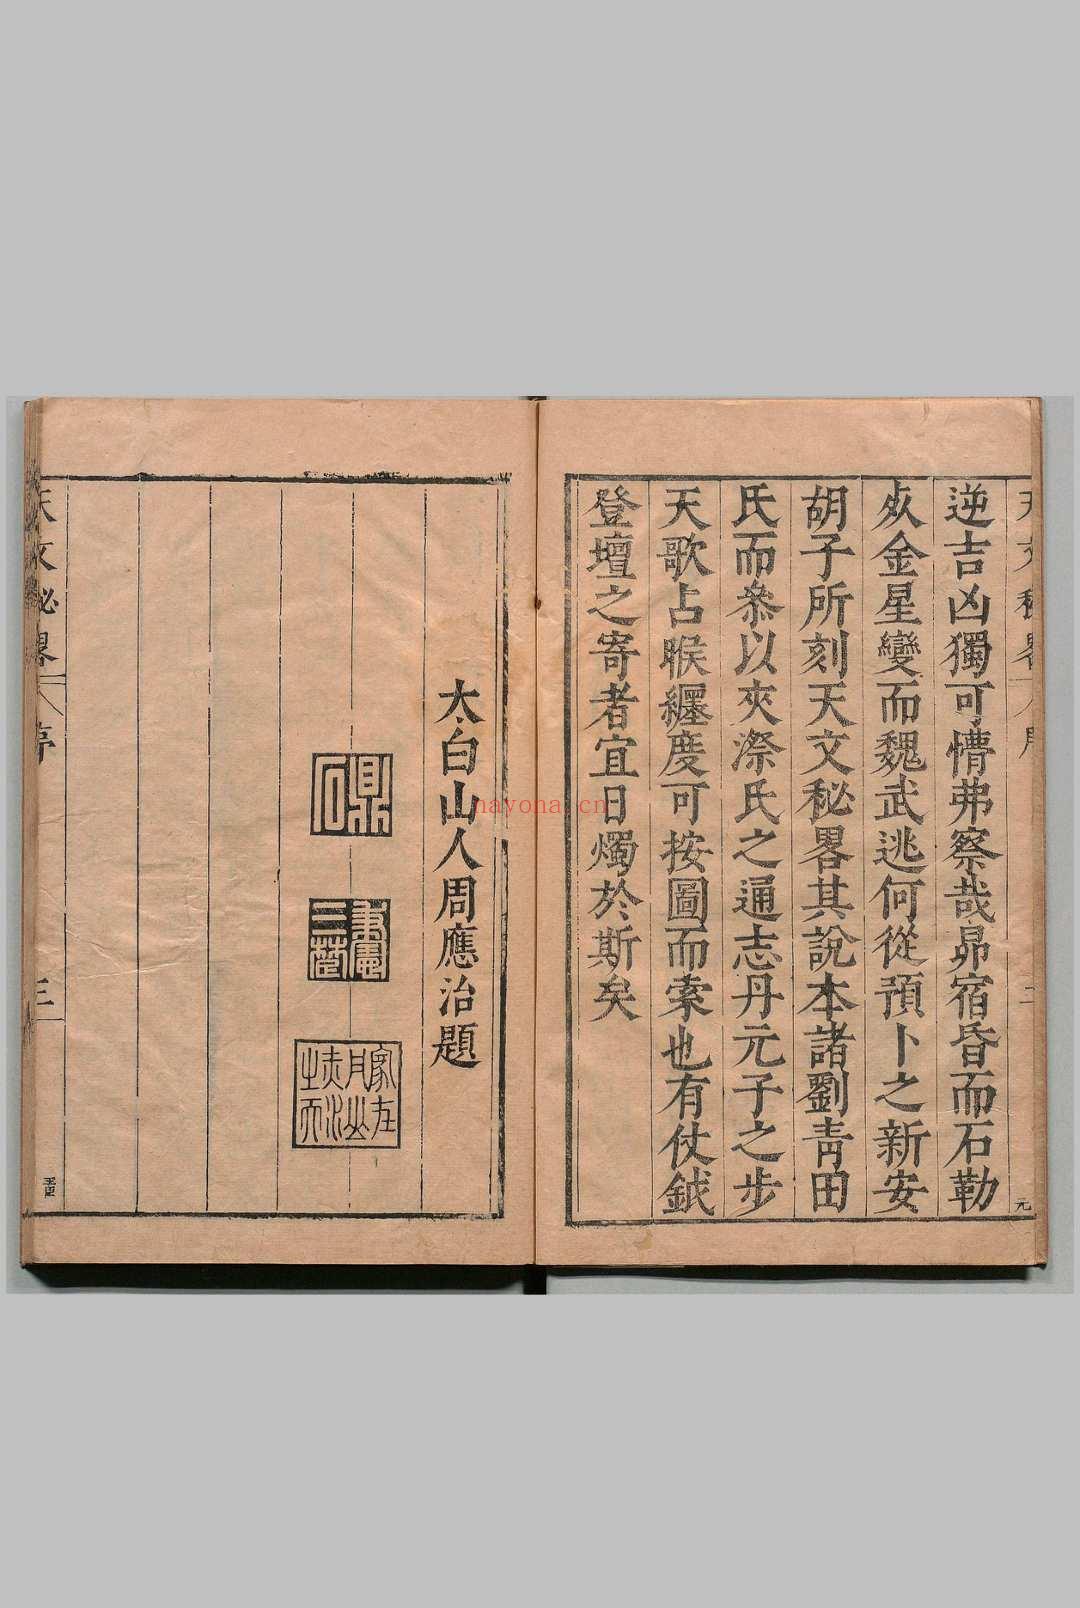 逆吉凶獨可懵弗察哉昴宿昏而石勒
灾金星變而魏武逃何從預卜之新安
胡子所刻天文秘畧其說本諸劉青田
氏而叅以夾漈氏之通志丹元子之步
天歌占睺纒度可按圖而索也有仗鉞
登壇之寄者宜日燭於斯矣
太白山人周應治題
鼎石
天文秘畧
序
三
元
nayona.cn